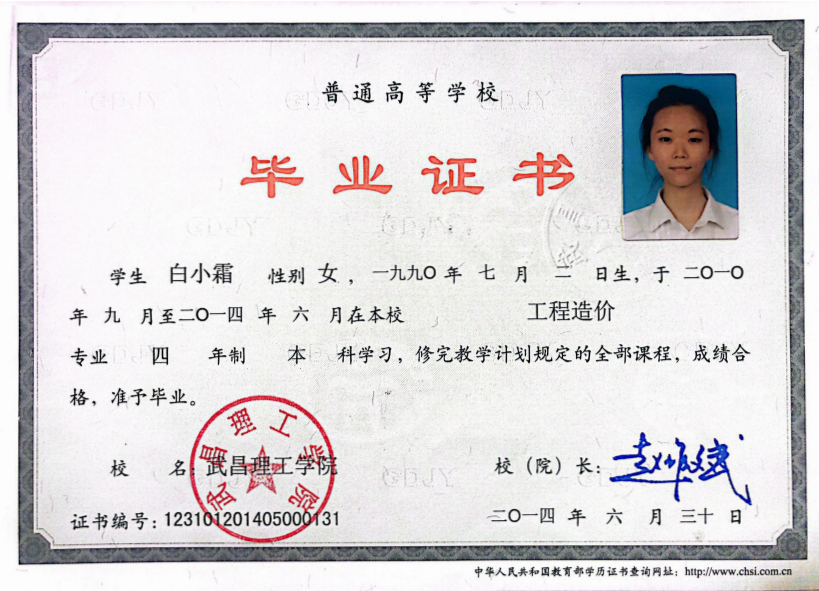 普通高等学校
毕业证书
学生 白小霜 性别 女，一九九〇年 七 月 二 日生，于 二〇一〇
年 九 月至二〇一四 年 六 月在本校 工程造价
专业 四 年制 本 科学习，修完教学计划规定的全部课程，成绩合
格，准予毕业。
校 名：武昌理工学院
武昌理工学院
校（院）长：赵作斌
证书编号：123101201405000131
二〇一四 年 六 月 三十 日
中华人民共和国教育部学历证书查询网址：http://www.chsi.com.cn